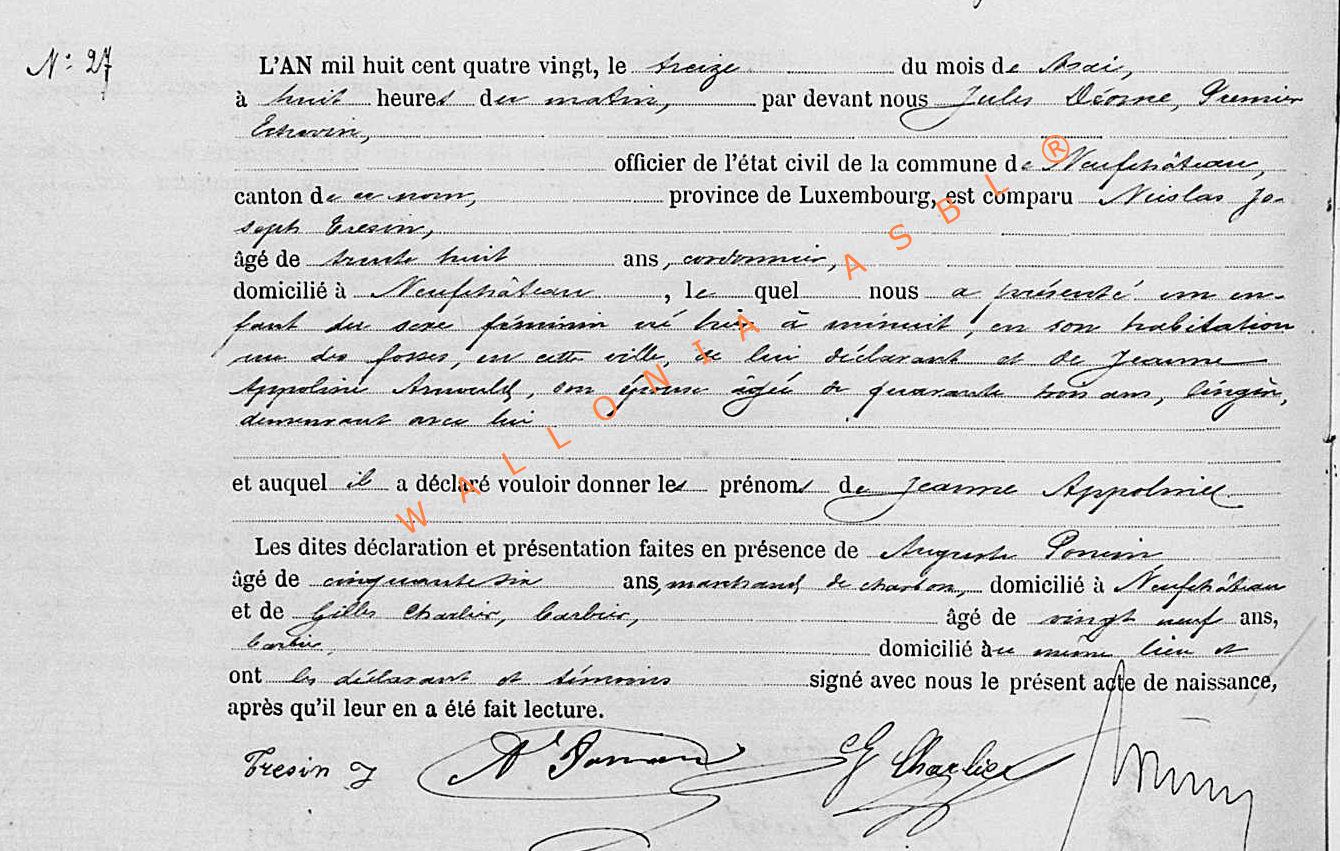 N° 27
L'AN mil huit cent quatre vingt, le treize du mois de Mai,
à huit heures du matin, par devant nous Jules Déome, Premier
Echevin,
officier de l'état civil de la commune de Neufchâteau,
canton de ce nom, province de Luxembourg, est comparu Nicolas Jo-
seph Tresin,
âgé de trente huit ans, cordonnier,
domicilié à Neufchâteau, le quel nous a présenté un en-
fant du sexe féminin né hier à minuit, en son habitation
rue des fossés, en cette ville, de lui déclarant et de Jeanne
Appoline Arnould, son épouse âgée de quarante trois ans, lingère,
demeurant avec lui
et auquel il a déclaré vouloir donner les prénoms de Jeanne Appoline
Les dites déclaration et présentation faites en présence de Auguste Poncin
âgé de cinquante six ans, marchand de charbon, domicilié à Neufchâteau
et de Gilles Charlier, barbier, âgé de vingt neuf ans,
barbier, domicilié au même lieu et
ont les déclarant et témoins signé avec nous le présent acte de naissance,
après qu'il leur en a été fait lecture.
Tresin J G Charlier
WALLONIA ASBL ®